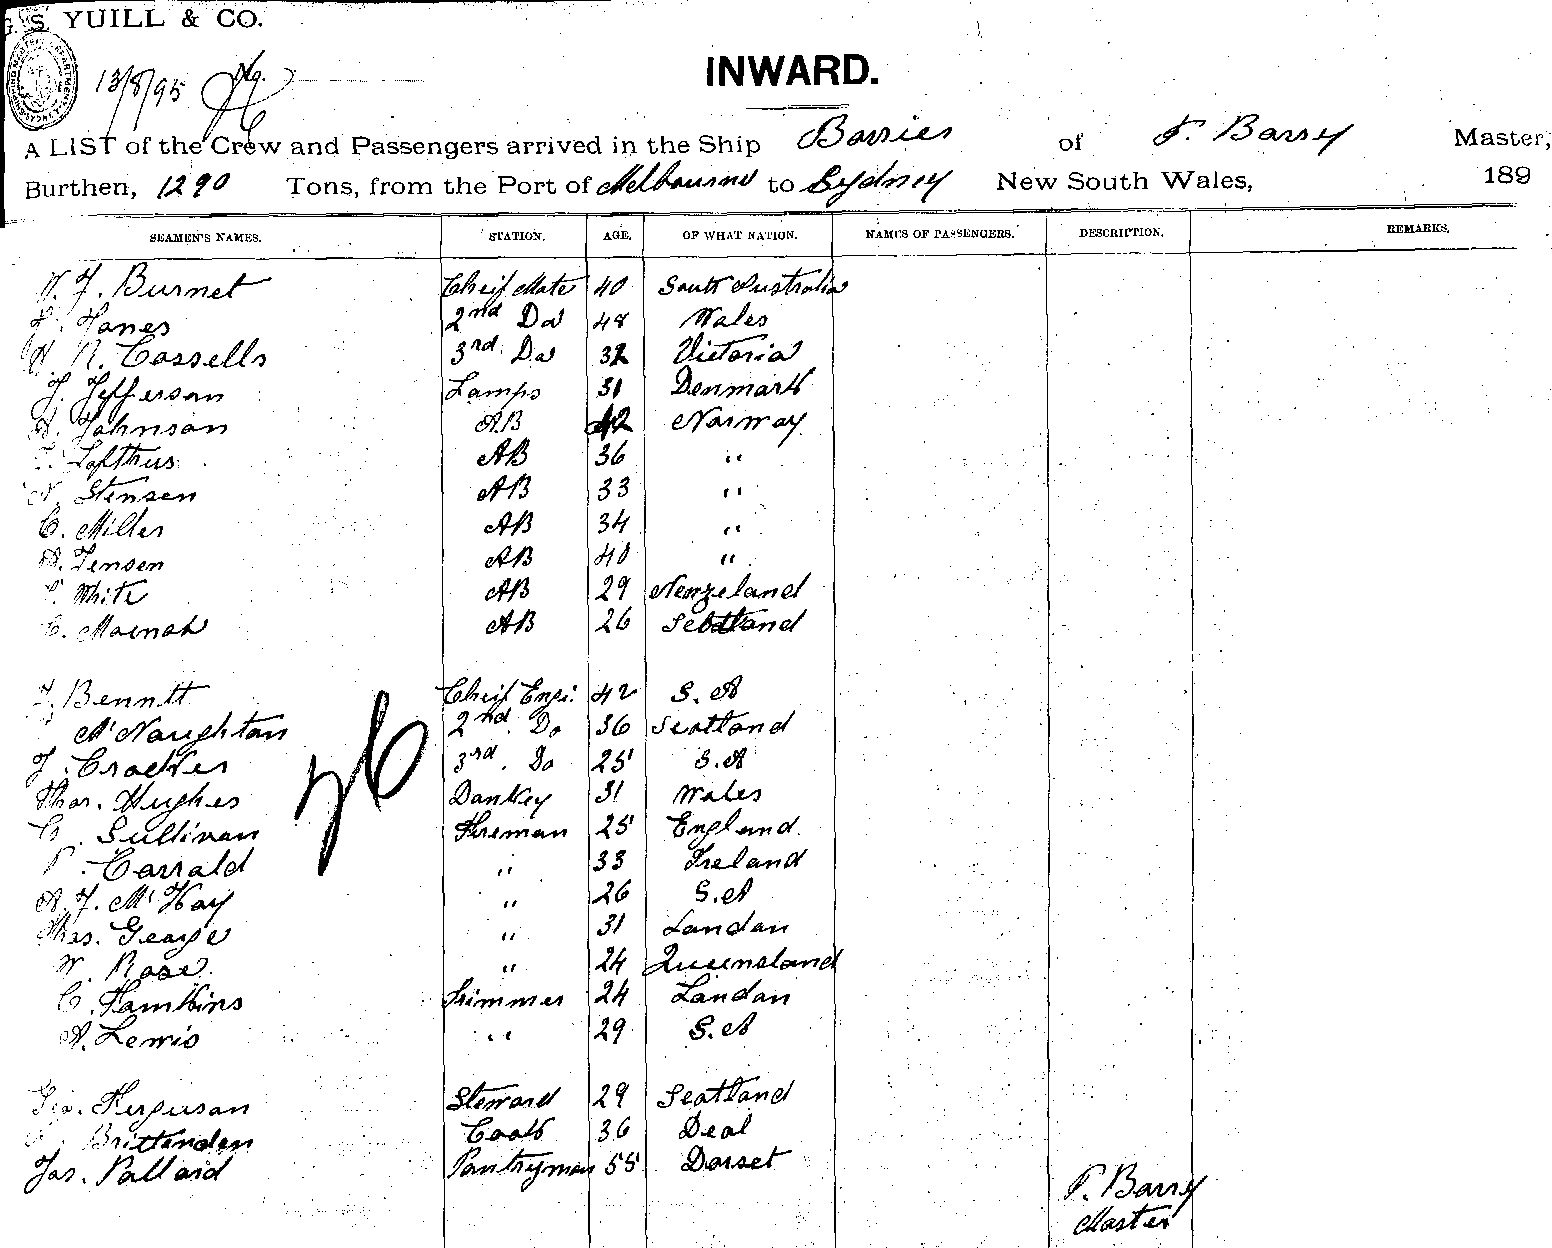 G. S. YUILL & CO.
13/8/95
INWARD.
A LIST of the Crew and Passengers arrived in the Ship Barrier of P. Barry Master,
Burthen, 1290 Tons, from the Port of Melbourne to Sydney New South Wales, 189
SEAMEN'S NAMES. STATION. AGE. OF WHAT NATION. NAMES OF PASSENGERS. DESCRIPTION. REMARKS.
Burnet Cheif Mate 40 South Australia
Jones 2nd Do 48 Wales
R. Cassells 3rd Do 32 Victoria
J. Jefferson Lamps 31 Denmark
Johnson AB 42 Norway
Lofthus AB 36 "
Stensen AB 33 "
C. Miller AB 34 "
Jensen AB 40 "
White AB 29 Newzeland
AB 26 Scotland
Bennett Cheif Engi. 42 S. A
McNaughton 2nd Do 36 Scotland
J. Crocker 3rd. Do 25 S. A
Thos. Hughes Donkey 31 Wales
Sullivan Fireman 25 England
P. Carrald " 33 Ireland
A. J. McKay " 26 S. A
Chas. George " 31 London
W. Rose " 24 Queensland
C. Tomkins Trimmer 24 London
A. Lewis " 29 S. A
Geo. Ferguson Steward 29 Scotland
Brittenden Cook 36 Deal
Jas. Pollard Pantryman 55 Dorset
P. Barry
Master